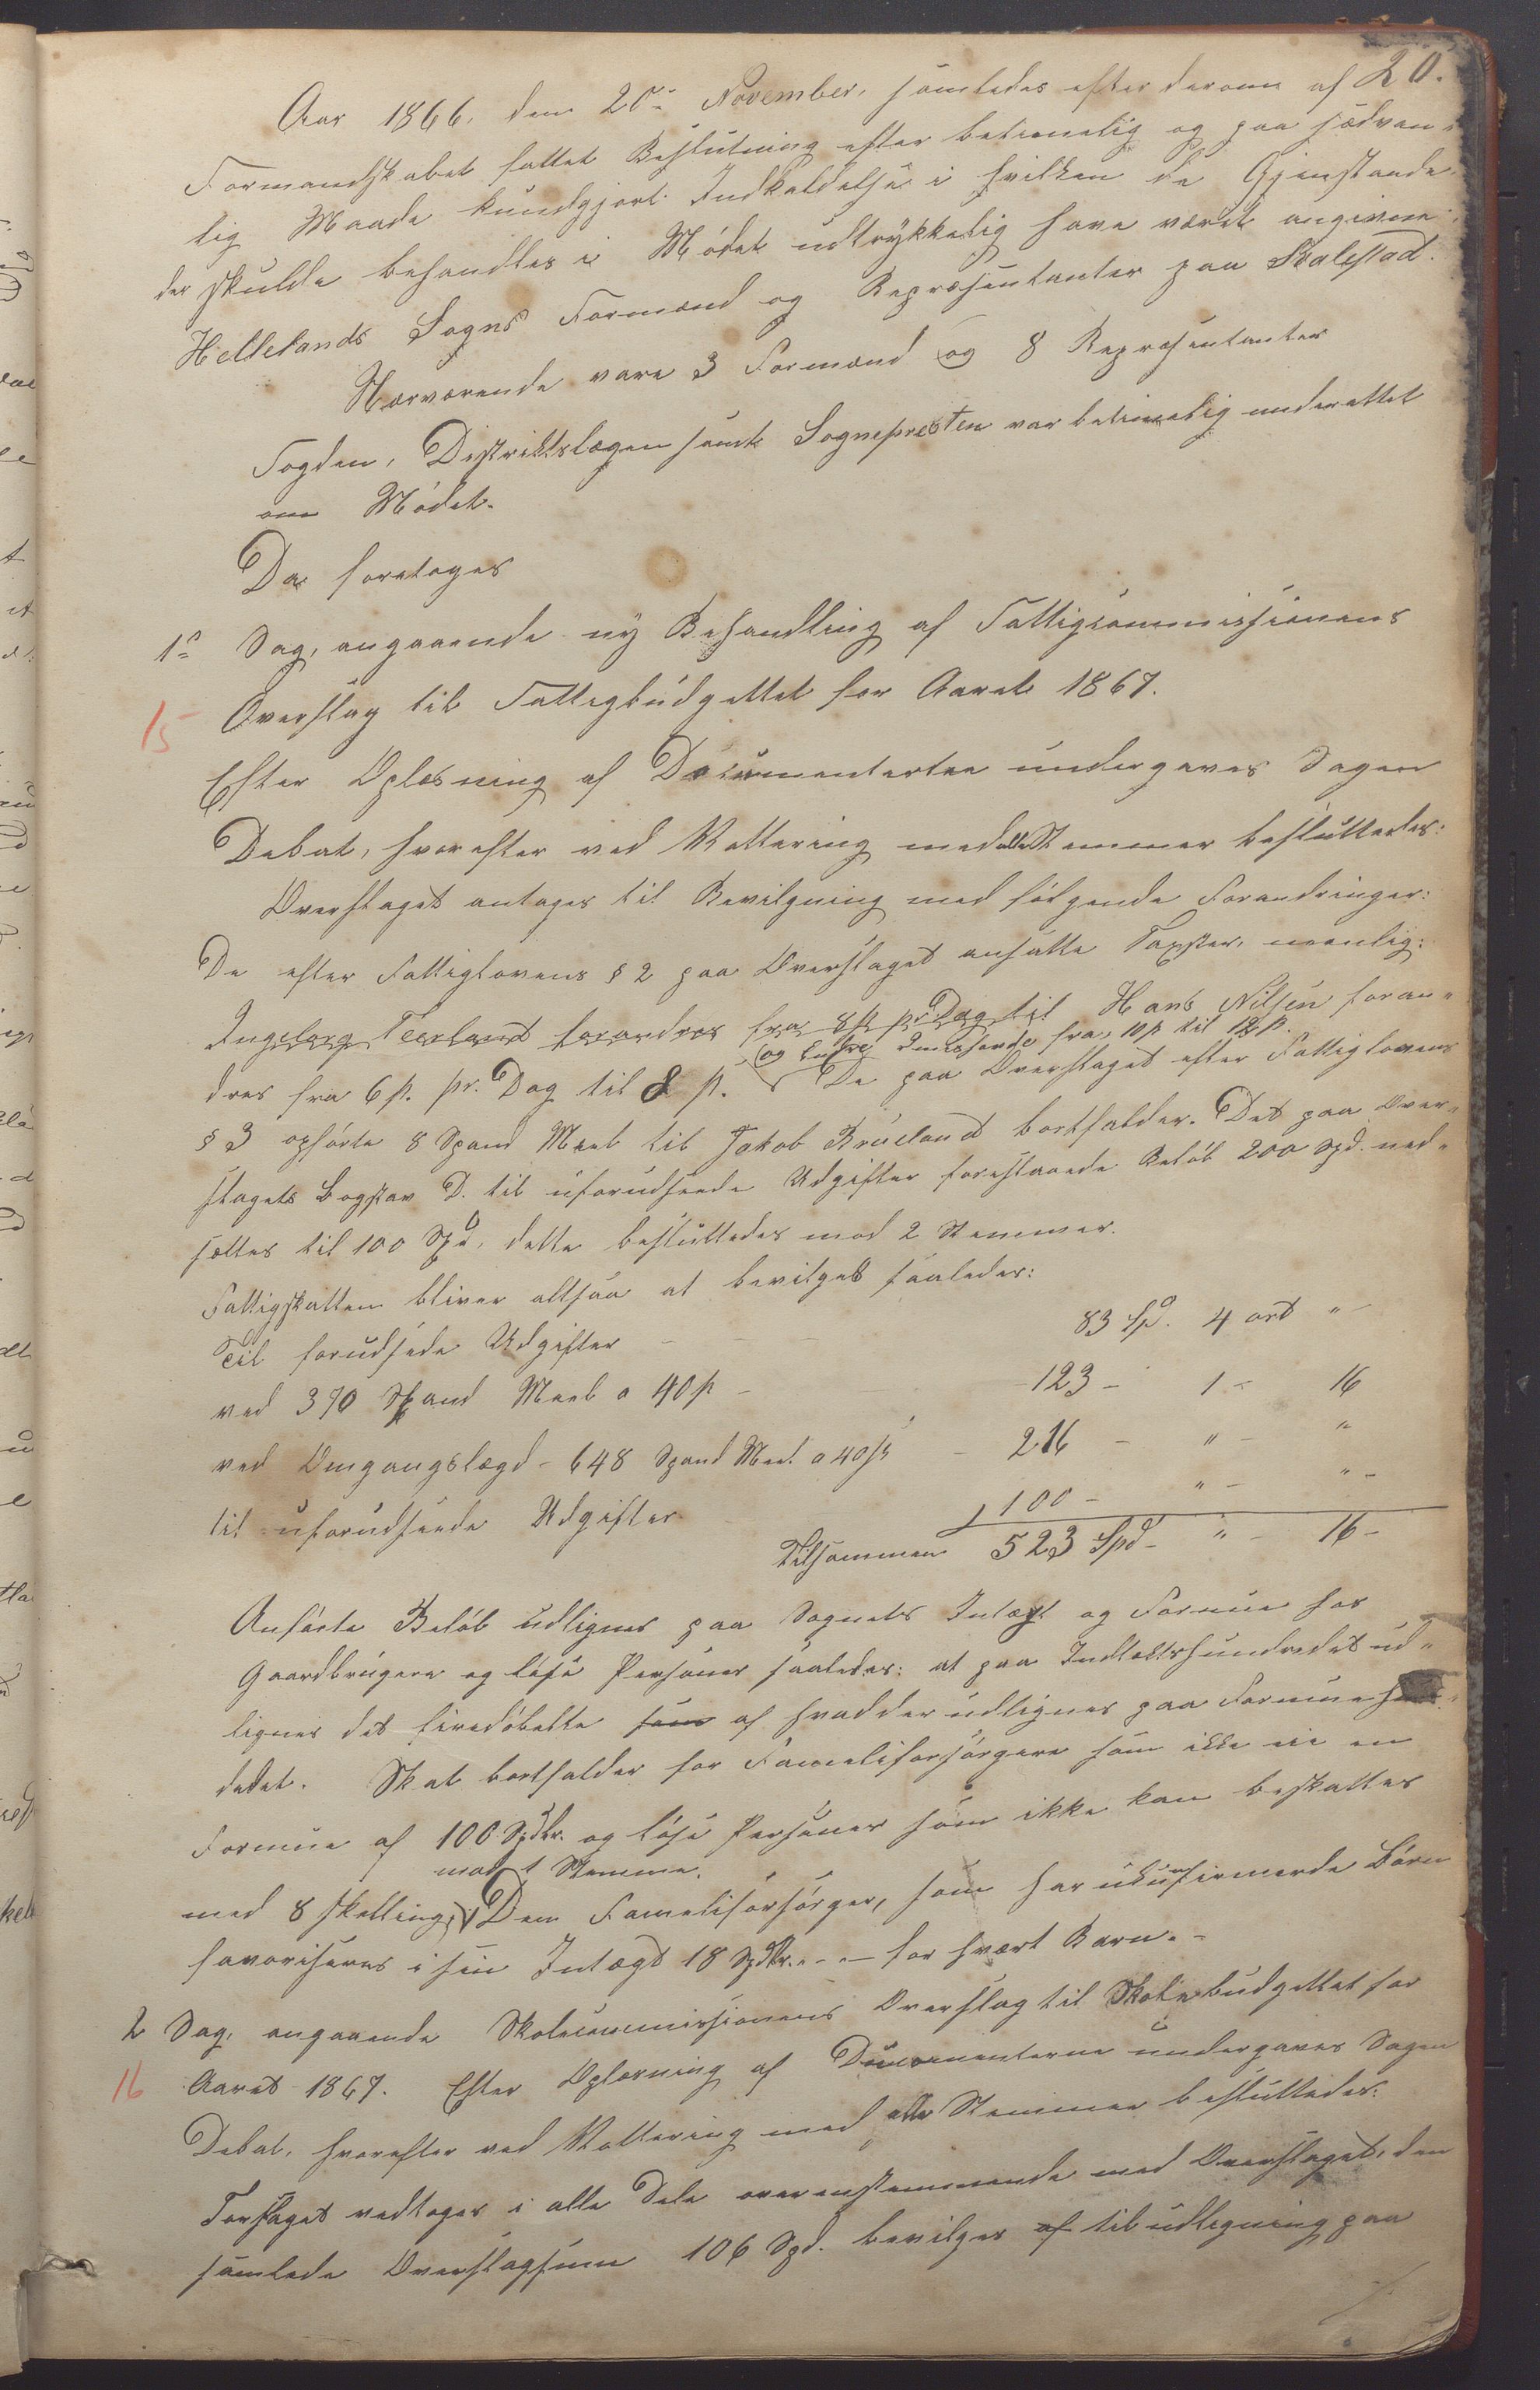 20.
Aar 1866, den 20de November, samledes efter derom af
Formandskabet fattet Beslutning efter betimelig og paa sædvan-
lig Maade kundgjort Indkaldelse i hvilken de Gjenstande
der skulde behandles i Mødet udtrykkelig have været angivne,
Hellelands Sogns Formænd og Repræsentanter paa Skalestad.
Nærværende vare 3 Formænd og 8 Repræsentanter
Fogden, Distriktslægen samt Sognepresten var betimelig underrettet
om Mødet.
Da foretoges
1ste Sag, angaaende ny Behandling af Fattigcommissionens
15 Overslag til Fattigbudgettet for Aaret 1867.
Efter Oplæsning af Documenterne undergaves Sagen
Debat, hvorefter ved Vottering med alle Stemmer besluttedes:
Overslaget antages til Bevilgning med følgende Forandringer:
De efter Fattiglovens § 2 paa Overslaget ansatte Taxster, nemlig:
Ingeborg Teerland forandres fra 8 s pr. Dag til Hans Nilsen foran"
og Enke fra 10 s til 12 s.
dres fra 6 s. pr. Dag til 8 s. De paa Overslaget efter Fattiglovens
§ 3 opførte 8 Spand Meel til Jakob Brueland bortfalder. Det paa Over"
slagets Bogstav D. til uforudseede Udgifter forestaaende Beløb 200 Spd. ned"
sættes til 100 Spd, dette besluttedes mod 2 Stemmer.
Fattigskatten bliver altsaa at bevilget saaledes:
Til forudsede Udgifter - - - 83 Spd. 4 ort " -
ved 370 Spand Meel a 40 s - 123 - 1 - 16
ved Omgangslægd - 648 Spand Meel a 40 s - 216 - " - "
til uforudseede Udgifter 100 - " - " -
Tilsammen 523 Spd - " - 16 -
Anførte Beløb udlignes paa Sognets Intægt og Formue hos
Gaardbrugere og løse Personer saaledes: at paa Indtægtshundredet ud"
lignes det firedobbelte som af hvad der udlignes paa Formueh
dedet. Skat bortfalder for Familieforsørgere som ikke eie en
Formue af 100 Spdlr. og løse Personer som ikke kan beskattes
mod 1 Stemme.
med 8 skelling. Den Familiforsørger, som har ukunfirmerde Børn
favoriseres i sin Intægt 18 Spdlr. - - - for hvært Barn. -
2 Sag, angaaende Skolecommissionens Overslag til Skolebudgettet for
16 Aaret 1867. Efter Oplæsning af Documenterne undergaves Sagen
Debat, hvorefter ved Vottering med alle Stemmer besluttedes:
Forslaget vedtages i alle Dele overenstemmende med Overslaget, den
samlede Overslagsum 106 Spd. bevilges af til udligning paa